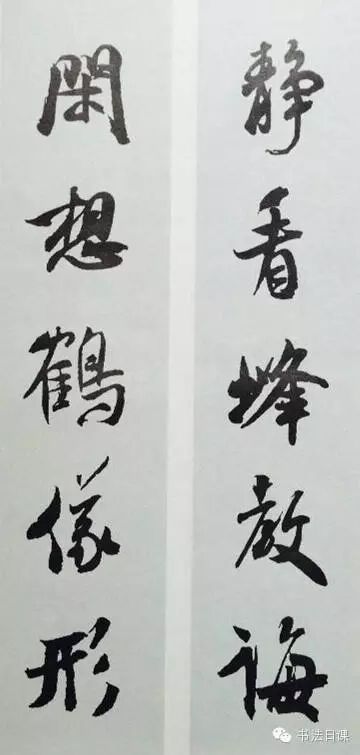 静看蜂教誨
閑想鶴儀形
书法日课